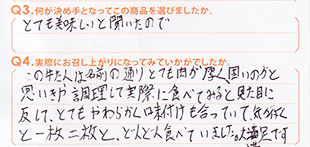 Q3.何が決め手となってこの商品を選びましたか。
とても美味しいと聞いたので
Q4.実際にお召し上がりになってみていかがでしたか。
この牛たんは名前の通りとても肉が厚く固いのかと
思いきや調理して実際に食べてみると見た目に
反して、とてもやわらかく味付けも合っていて、気がつく
と一枚二枚と、どんどん食べていました。大満足です